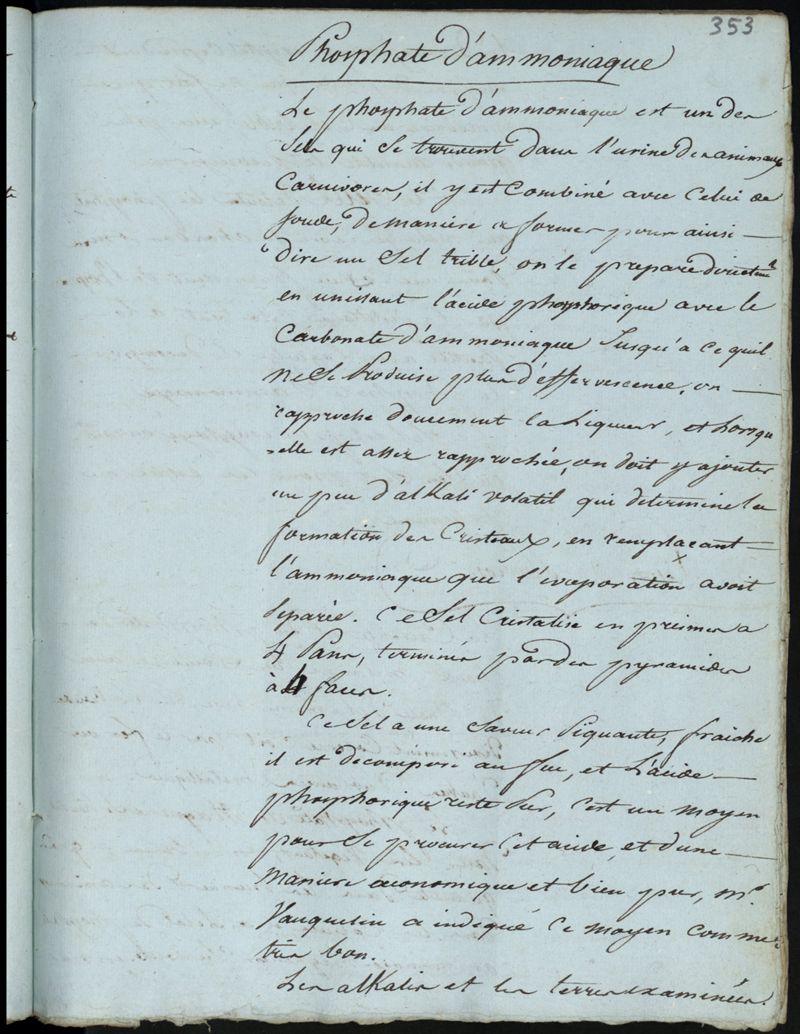 353
Phosphate d'ammoniaque
Le phosphate d'ammoniaque est un des
Sels qui se trouvent dans l'urine des animaux
Carnivores, il y est Combiné avec Celui de
soude, de manière a former pour ainsi —
dire un Sel trible, on le prepare directemt
en unissant l'acide phosphorique avec le
Carbonate d'ammoniaque Jusqu'a ce quil
ne Se Produise plus d'effervescence, on —
rapproche doucement la Liqueur, et Lorsqu
=elle est assez rapprochée, on doit y ajouter
un peu d'alKali volatil qui determine la
formation des Cristaux, en remplacant —
l'ammoniaque que l'evaporation avoit
Separée. Ce Sel Cristalise en prismes a
4 Pans, terminés par des pyramides
à 4 faces.
Ce Sel a une Saveur Piquante, fraiche
il est decomposé au feu, et L'acide —
phosphorique reste Pur, c'est un moyen
pour Se procurer Cet acide, et d'une —
maniere œconomique et bien pur, mr.
Vauquelin a indiqué Ce moyen comme
très bon.
Les alKalis et les terres examinées